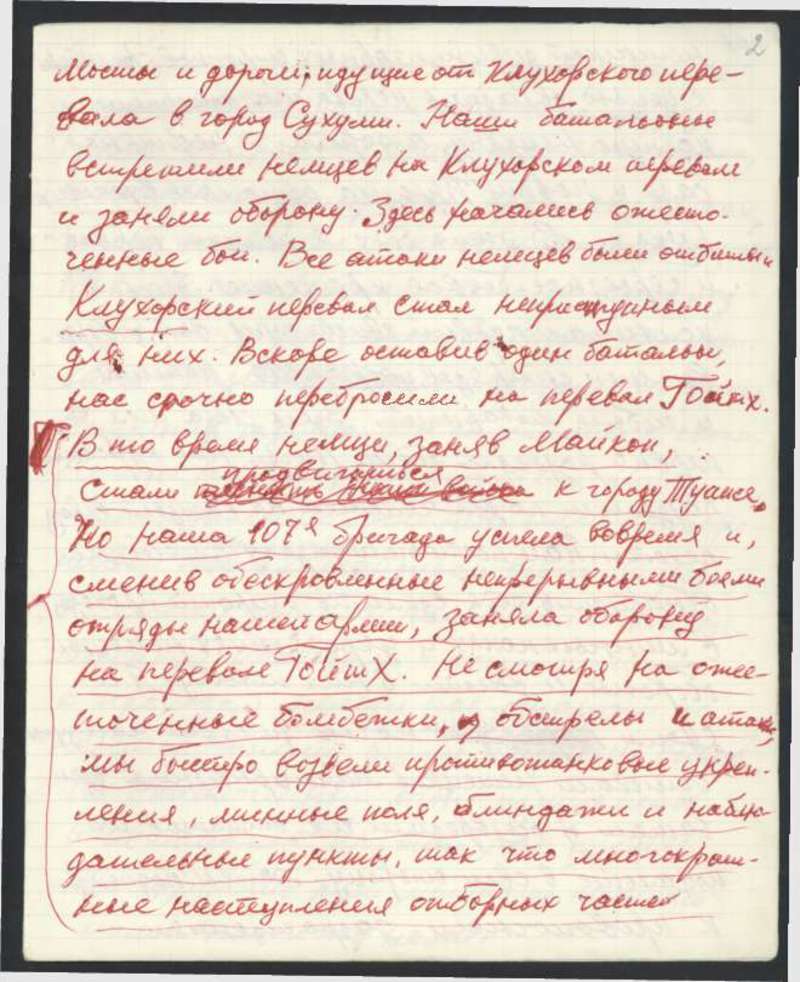 2
Мосты и дороги, идущие от Клухорского пере-
вала в город Сухуми. Наши батальоны
встретили немцев на Клухорском перевале
и заняли оборону. Здесь начались ожесто-
ченные бои. Все атаки немцев были отбиты и
Клухорский перевал стал неприступным
для них. Вскоре оставив один батальон,
нас срочно перебросили на перевал Гойтх.
В то время немцы, заняв Майкоп,
продвигаться
стали к городу Туапсе.
Но наша 107я бригада успела вовремя и,
сменив обескровленные непрерывными боями
отряды нашей армии, заняла оборону
на перевале Гойтх. Не смотря на оже-
сточенные бомбежки, обстрелы и атаки,
мы быстро возвели противотанковые укреп-
ления, минные поля, блиндажи и наблю-
дательные пункты, так что многократ-
ные наступления отборных частей